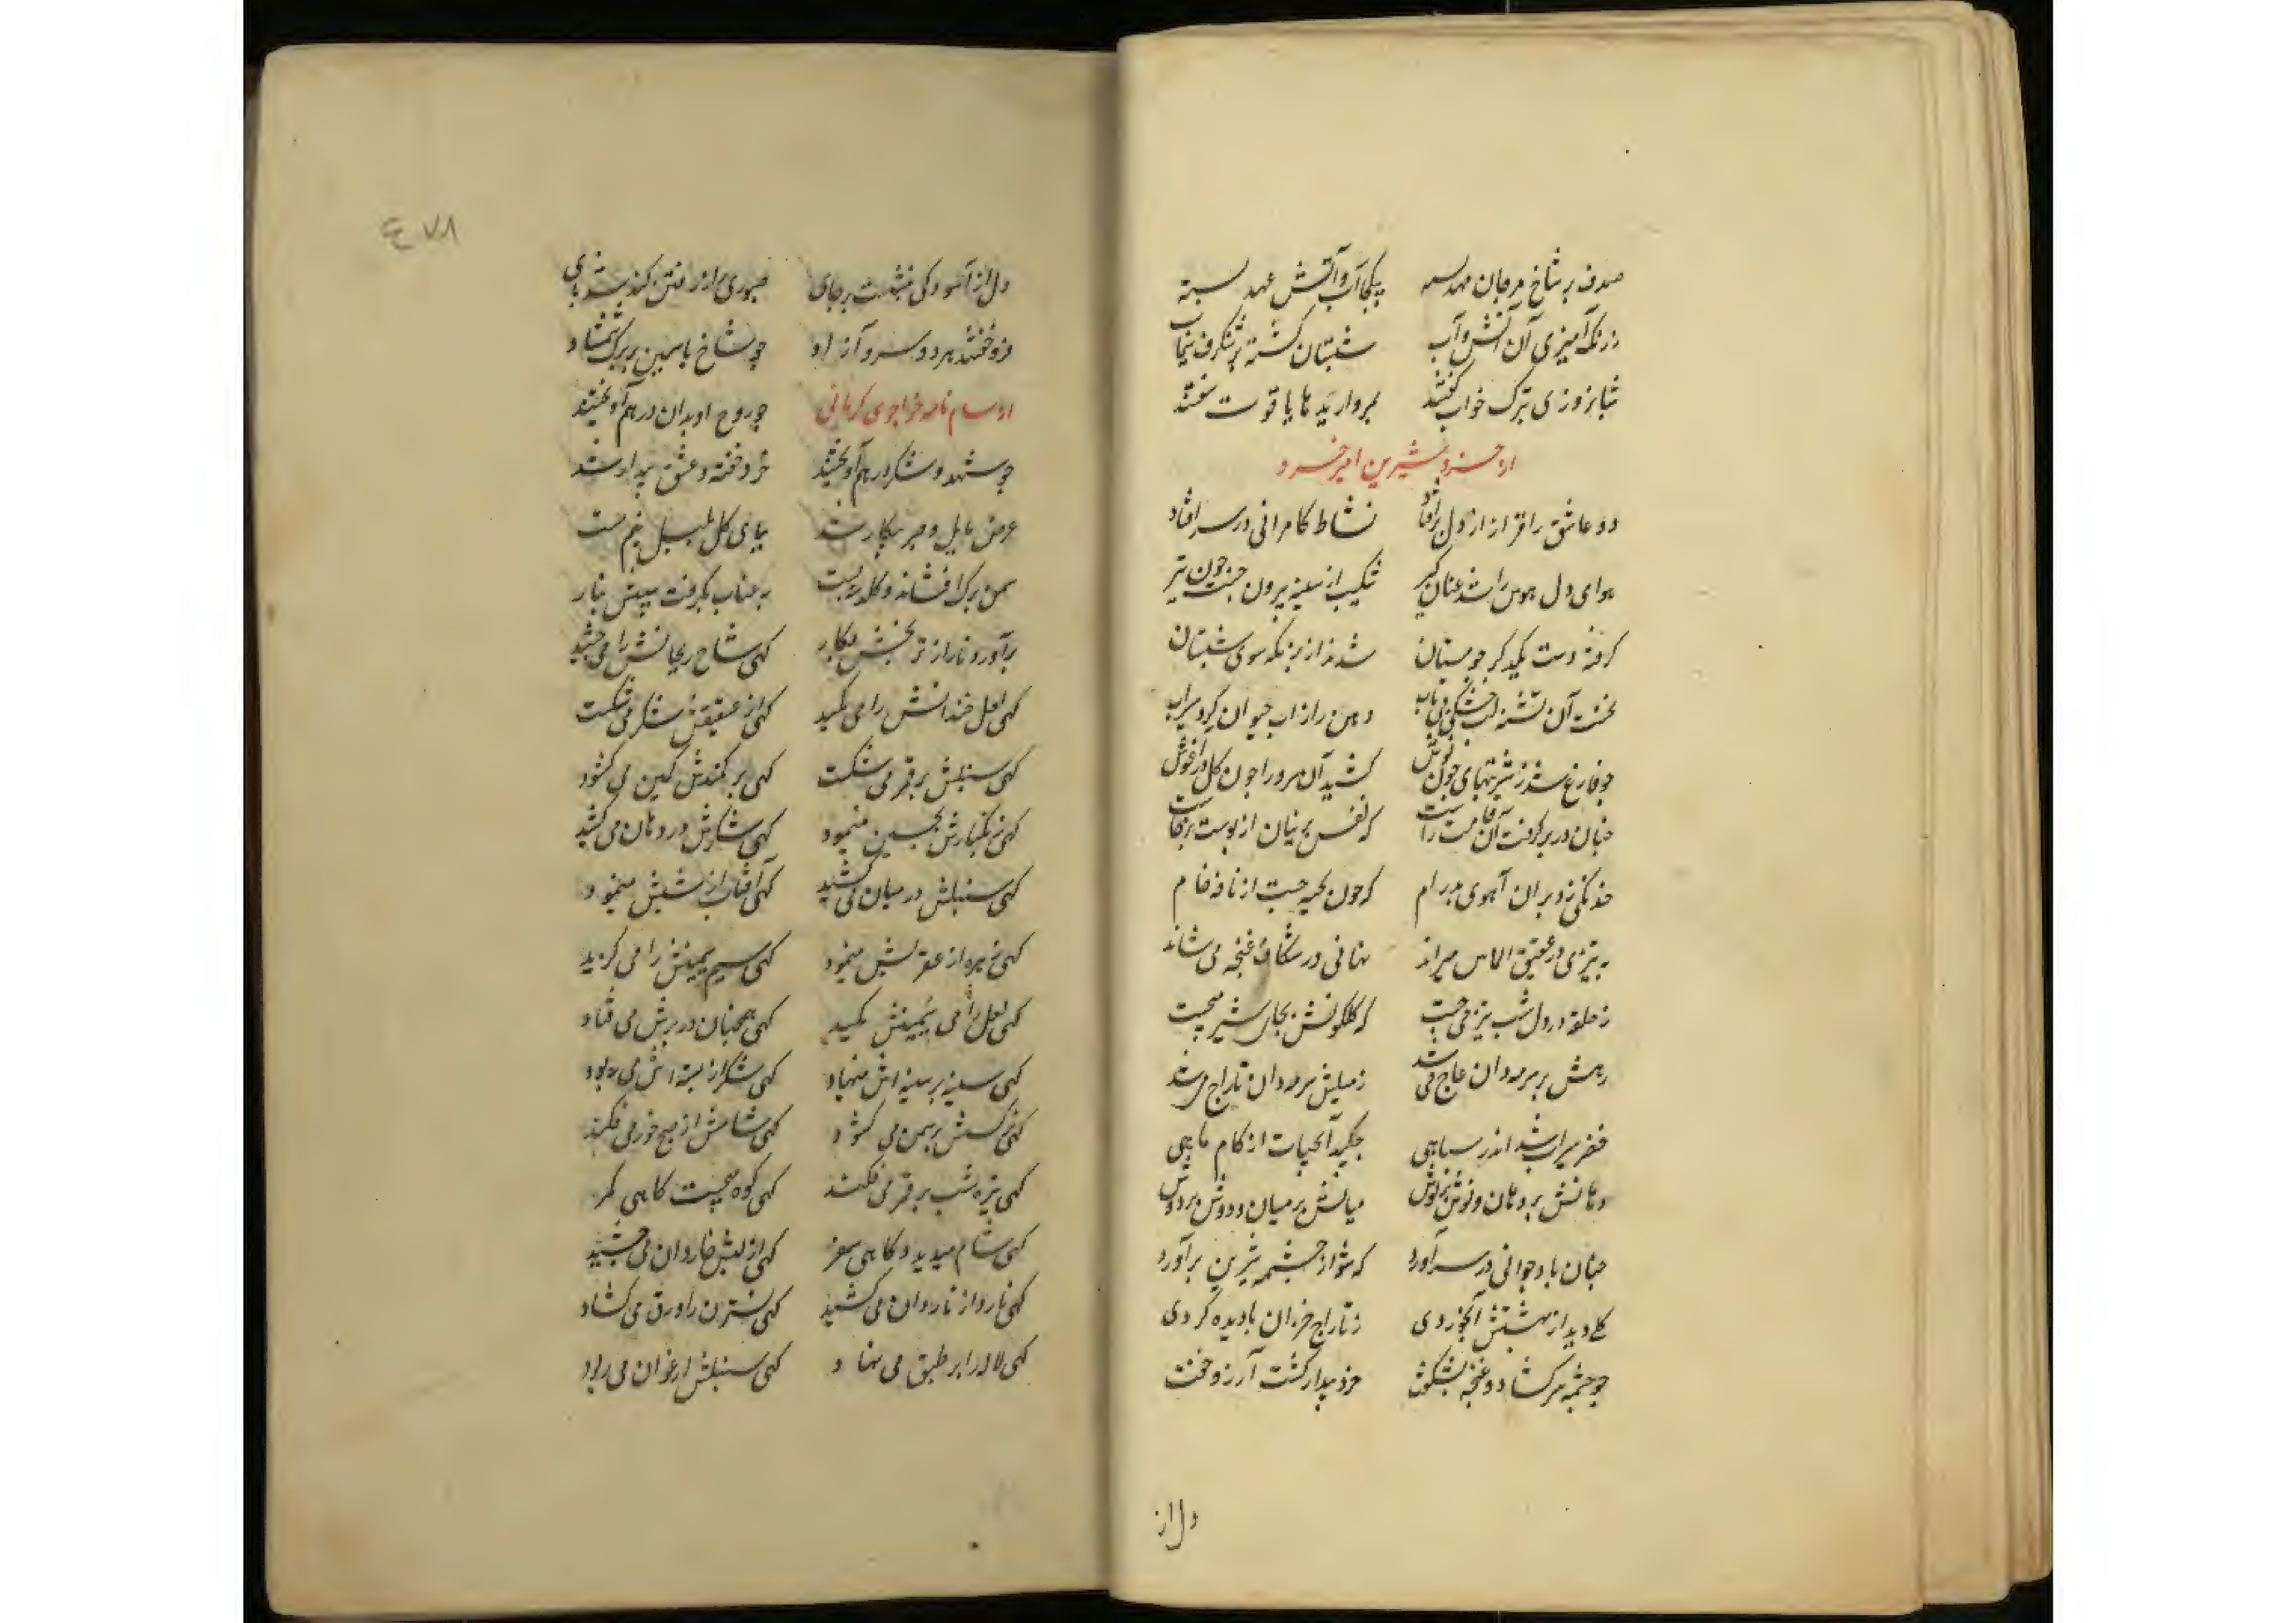 صدف بر شاخ مرجان مهد بسته	بیکجا آب و آتش عهد بسته
ز رنگ آمیزی آن آتش و آب	شبستان گشته پر شنگرف و سیماب
شبانروزی بترک خواب گفتند	بمروارید ها یاقوت سفتند
از خسرو شیرین امیر خسرو
دو عاشق را قرار از دل برافتاد	نشاط کامرانی در سر افتاد
هوای دل هوس را شد عنان گیر	شکیب از سینه بیرون جست چون تیر
گرفته دست یکدگر چو مستان	شدند از بزمگه سوی شبستان
نخست آن تشنه لب خشک بی تاب	دهن را از آب حیوان کرد سیراب
چو فارغ شد ز شربتهای چون نوش	کشید آن سرو را چون گل در آغوش
چنان در بر گرفت آن قامت راست	که نقس پرنیان از پوست برخاست
خدنگی زد بران آهوی بدرام	که خون بجست از نافه خام
به تیزی در عقیق الماس میراند	نهانی در شکاف غنچه می شاند
ز حلقه در دل شب تیز می جست	که گلگونش بجای شیر میجست
رهش بر سرمه دان عاج می شد	ز میلش سرمه دان تاراج می شد
خضر سیراب شد اندر سیاهی	چکید آبحیات از کام ماهی
دهانش بر دهان و نوش بر نوش	میانش بر میان و دوش بر دوش
چنان باد جوانی در سر آورد	که شور از چشمه شیرین برآورد
گلی دید از بهشتش آبخوردی	ز تاراج خزان نادیده گردی
چو چشمه سر گشاد و غنچه بشکفت	خرد بیدار گشت آرزو خفت
دل از
٤٧٨
دل از آسودگی ننشست بر جای	صبوری از رفتن کند شد پای
فرو خفتند هر دو سرو آزاد	چو شاخ یاسمین بر برگ شمشاد
از سام نامه خواجوی کرمانی	چو روح و بدان در هم آویختند
چو شهد و شکر در هم آویختند	خرد خفته و عشق بیدار شد
غرض مایل و صبر بیکار شد	بپای گل بلبل نیم مست
سمن برگ افشاند و گلدسته بست	به عناب بگرفت سیبش بنار
برآورد نار از ترنجش بکار	کهی شاخ ریحانش را می چشید
کهی لعل خندانش را می مکید	کهی از عقیقش شکر می شکست
کهی سنبلش بر قمر می شکست	کهی بر کمندش کمین می گشود
کهی زنگبارش بچین مینمود	کهی شکرش در دهان می کشید
کهی سنبلش در میان می کشید	کهی آفتاب از شبش مینمود
کهی زهره از عقربش مینمود	کهی سیم سیمینش را می گزید
کهی لعل را می مکید	کهی همچنان در برش می فتاد
کهی سینه بر سینه اش مینهاد	کهی شکر از پسته اش می ربود
کهی نرگسش بر سمن می گشود	کهی شامش از صبح خور می فکند
کهی تیره شب بر قمر می فکند	کهی کوه میجست کاهی کمر
کهی شام میدید و کاهی سحر	کهی از لبش نار دان می چشید
کهی نارد از ناردان می کشید	کهی نسترن را ورق می گشاد
کهی لاله را بر طبق می نهاد	کهی سنبلش ارغوان می ربود